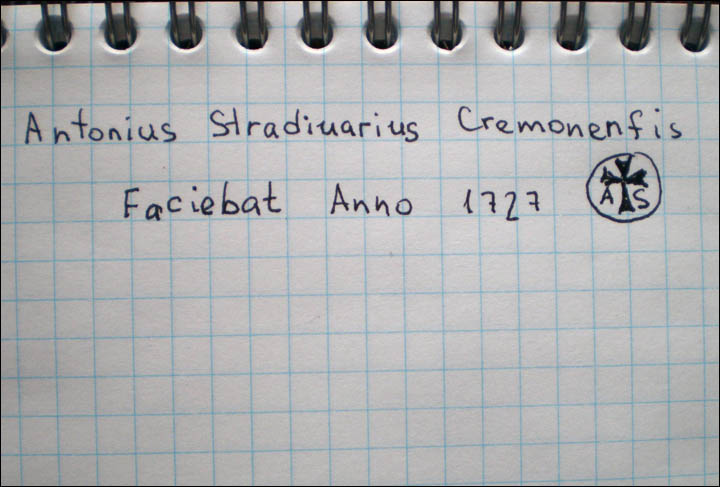 Antonius Stradiuarius Cremonenfis
Faciebat Anno 1727 A S